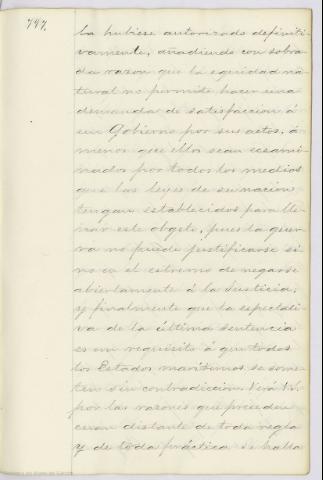 747.
la hubiese autorizado definiti-
vamente, añadiendo con sobra
da razon que la equidad na-
tural no permite hacer una
demanda de satisfaccion á
un Gobierno por sus actos, á
menos que ellos sean ecsami-
nados por todos los medios
que las leyes de su nacion
tengan establecidos para lle-
nar este objeto, pues la guer-
ra no puede justificarse si-
no en el estremo de negarse
abiertamente á la Justicia;
y finalmente que la espectati-
va de la última sentencia
es un requisito á que todos
los Estados maritimos se some-
ten sin contradiccion. Verá V.E.
por las razones que preceden
cuan distante de toda regla
y de toda práctica se halla